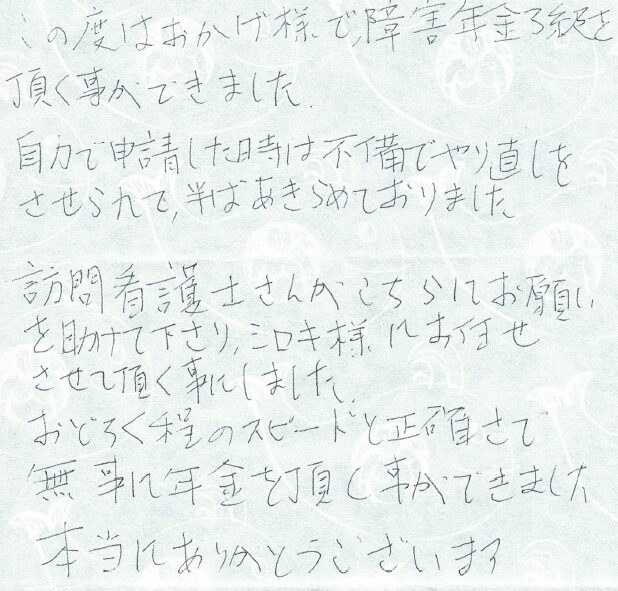 この度はおかげ様で、障害年金3級を
頂く事ができました。
自力で申請した時は不備でやり直しを
させられて、半ばあきらめておりました
訪問看護士さんがこちらにお願い
を助けて下さり、ミロキ様にお任せ
させて頂く事にしました。
おどろく程のスピードと正確さで
無事に年金を頂く事ができました
本当にありがとうございます